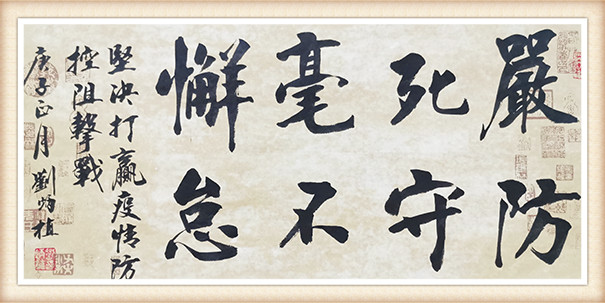 嚴防
死守
毫不
懈怠
堅決打贏疫情防
控阻擊戰
庚子正月劉